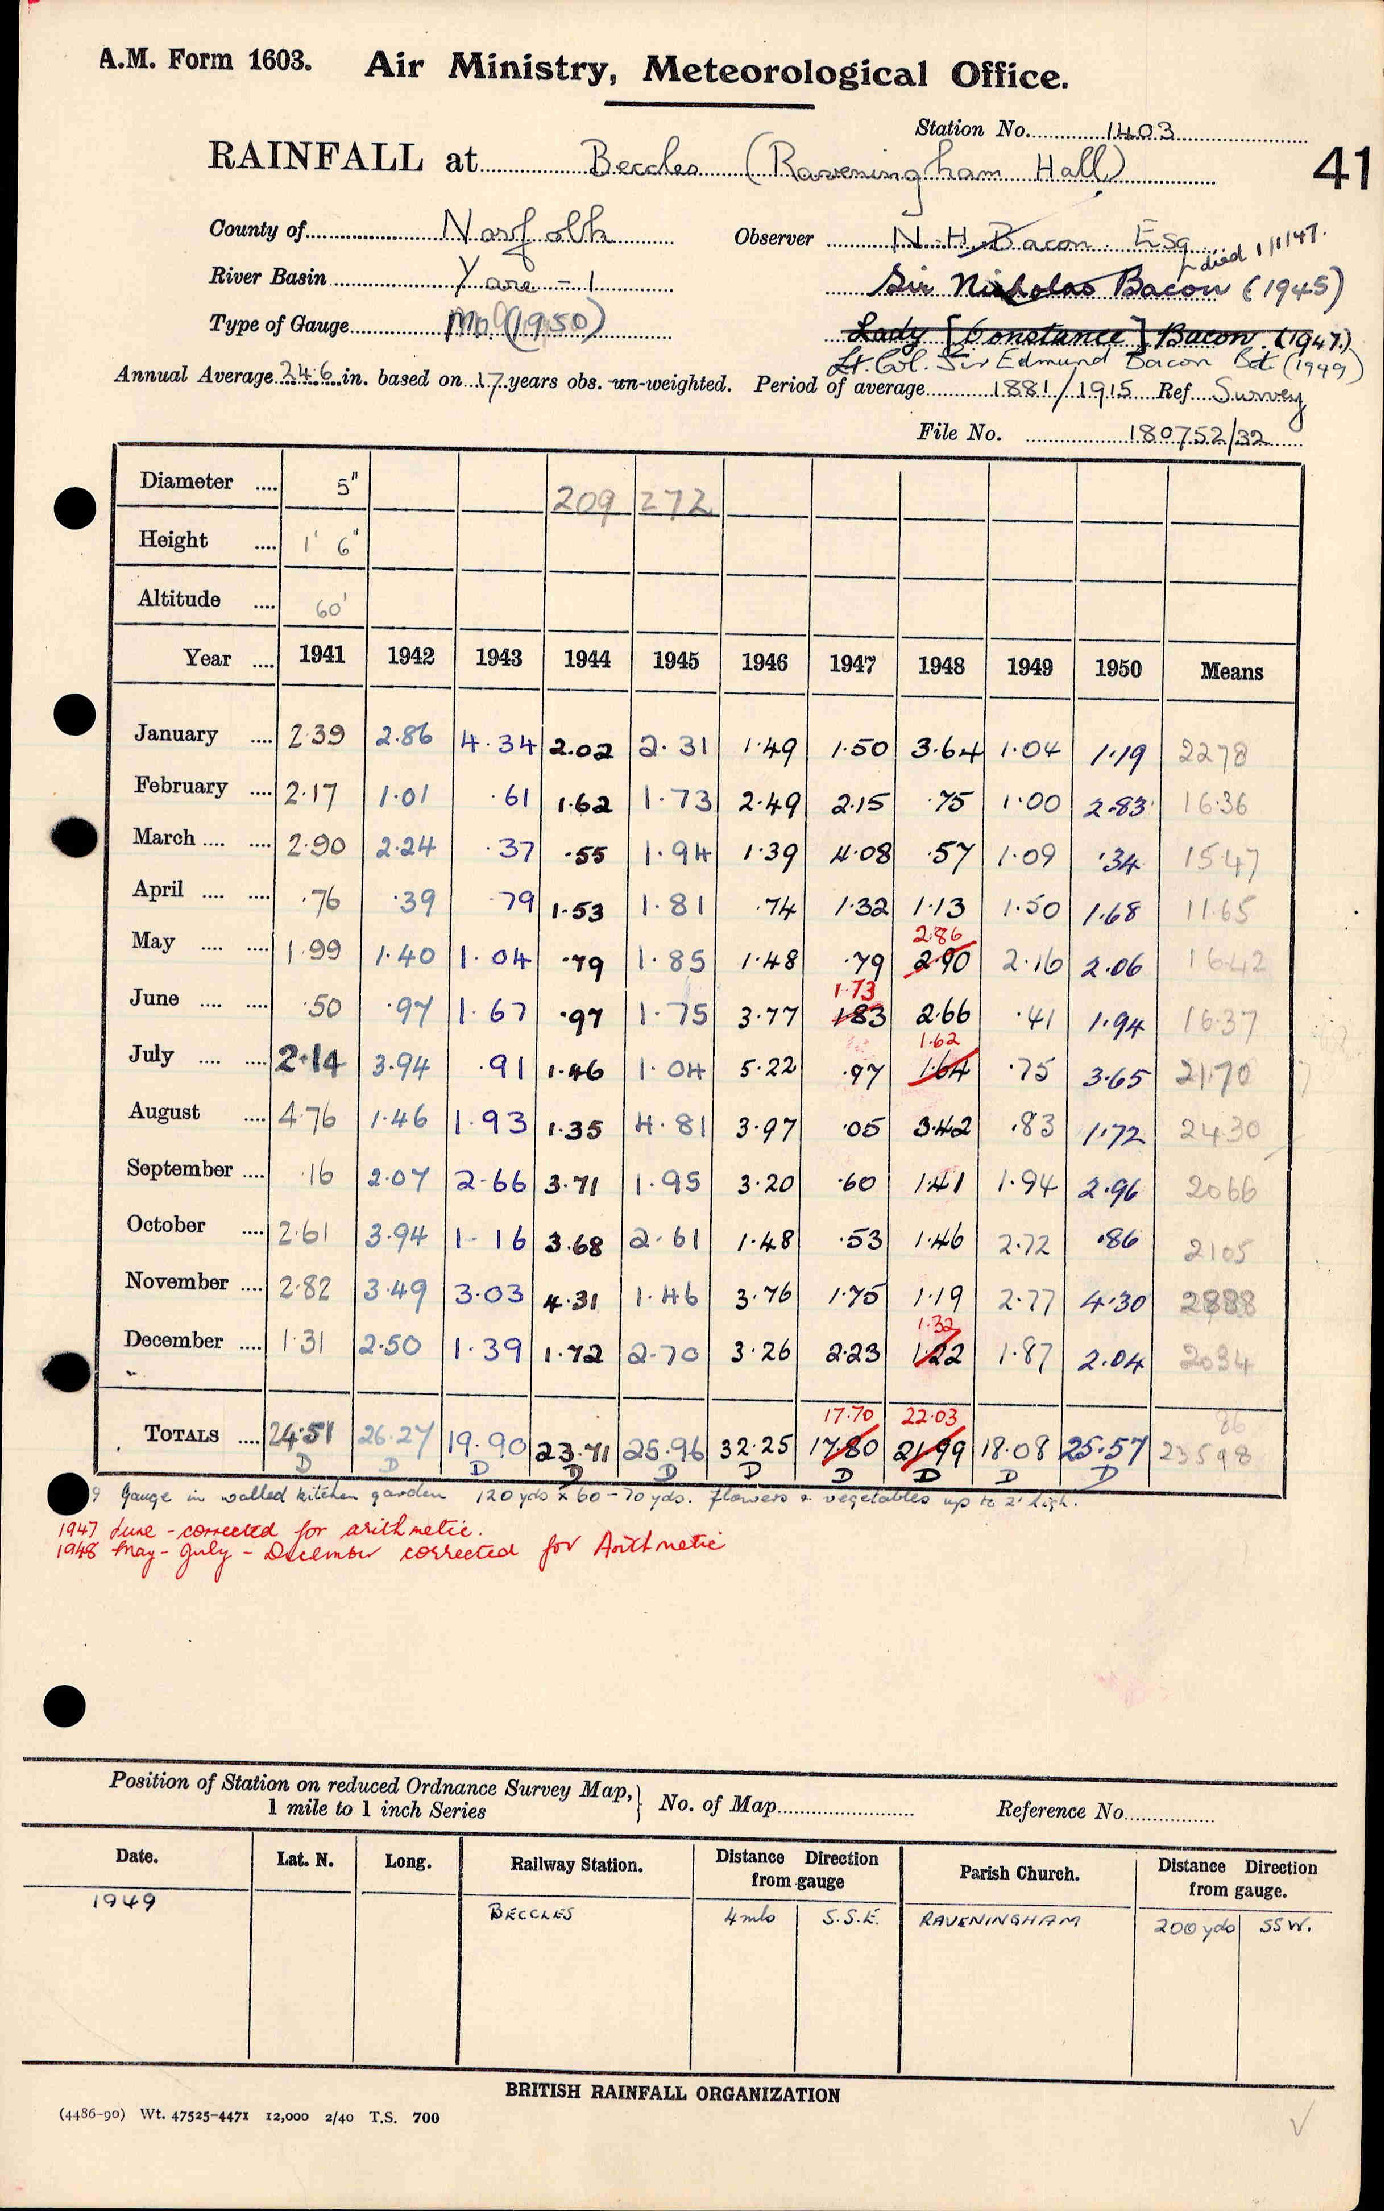 A.M. Form 1603. Air Ministry, Meteorological Office.
Station No. 1403
RAINFALL at Beccles (Raveningham Hall)
41
County of Norfolk Observer N.H. Bacon Esq
died 1/1/47.
River Basin Yare - 1 Sir Nicholas Bacon (1945)
Type of Gauge MO (1950) Lady [Constance] Bacon. (1947)
Lt. Col. Sir Edmund Bacon Bt. (1949)
Annual Average 24.6 in. based on 17 years obs. un-weighted. Period of average 1881/1915 Ref Survey
File No. 180752/32
Diameter .... 5" 209 272
Height .... 1' 6"
Altitude .... 60'
Year .... 1941 1942 1943 1944 1945 1946 1947 1948 1949 1950 Means
January .... 2.39 2.86 4.34 2.02 2.31 1.49 1.50 3.64 1.04 1.19 2278
February .... 2.17 1.01 .61 1.62 1.73 2.49 2.15 .75 1.00 2.83 16.36
March .... .... 2.90 2.24 .37 .55 1.94 1.39 4.08 .57 1.09 .34 1547
April .... .... .76 .39 .79 1.53 1.81 .74 1.32 1.13 1.50 1.68 11.65
2.86
May .... .... 1.99 1.40 1.04 .79 1.85 1.48 .79 2.90 2.16 2.06 16.42
1.73
June .... .... .50 .97 1.67 .97 1.75 3.77 1.83 2.66 .41 1.94 16.37
1.62
July .... .... 2.14 3.94 .91 1.46 1.04 5.22 .97 1.64 .75 3.65 21.70
August .... 4.76 1.46 1.93 1.35 4.81 3.97 .05 3.42 .83 1.72 2430
September .... .16 2.07 2.66 3.71 1.95 3.20 .60 1.41 1.94 2.96 2066
October .... 2.61 3.94 1.16 3.68 2.61 1.48 .53 1.46 2.72 .86 2105
November .... 2.82 3.49 3.03 4.31 1.46 3.76 1.75 1.19 2.77 4.30 2888
1.32
December .... 1.31 2.50 1.39 1.72 2.70 3.26 2.23 1.22 1.87 2.04 2034
17.70 22.03 86
TOTALS .... 24.51 26.27 19.90 23.71 25.96 32.25 17.80 21.99 18.08 25.57 23598
D D D D D D D D D D
Gauge in walled kitchen garden 120 yds x 60-70 yds. flowers & vegetables up to 2' high.
1947 June - corrected for arithmetic.
1948 May - July - December corrected for Arithmetic
Position of Station on reduced Ordnance Survey Map, 1 mile to 1 inch Series } No. of Map Reference No
Date. Lat. N. Long. Railway Station. Distance Direction from gauge Parish Church. Distance Direction from gauge.
1949 BECCLES 4 mls S.S.E. RAVENINGHAM 200 yds SSW.
BRITISH RAINFALL ORGANIZATION
(4486-90) Wt. 47525-4471 12,000 2/40 T.S. 700